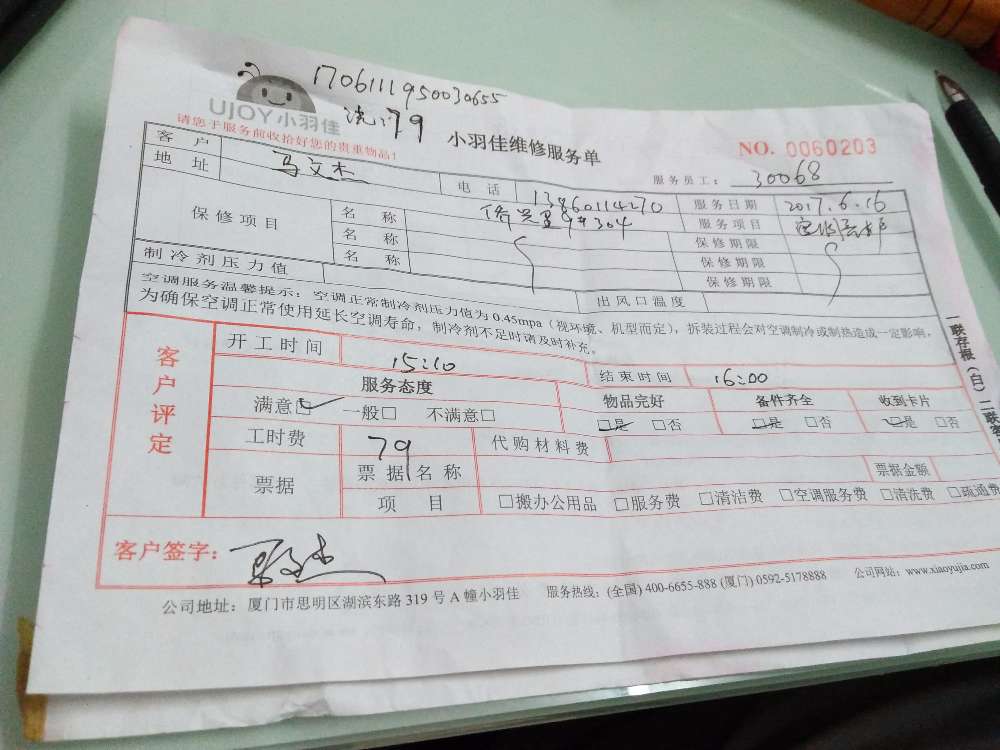 1706111950030655
UJOY小羽佳
洗 79
请您于服务前收拾好您的贵重物品!
小羽佳维修服务单
NO. 0060203
服务员工: 30068
客户 马文杰 电话 13860114270 服务日期 2017.6.16
地址 侨兰里 304 服务项目
保修项目 名称 保修期限
名称 保修期限
名称 保修期限
制冷剂压力值 出风口温度
空调服务温馨提示:空调正常制冷剂压力值为 0.45mpa(视环境、机型而定),拆装过程会对空调制冷或制热造成一定影响,
为确保空调正常使用延长空调寿命,制冷剂不足时请及时补充。
客户评定
开工时间 15:10 结束时间 16:00
服务态度 物品完好 备件齐全 收到卡片
满意☑ 一般□ 不满意□ ☑是 □否 ☑是 □否 ☑是 □否
工时费 79 代购材料费
票据 票据名称 票据金额
项目 □搬办公用品 □服务费 □清洁费 □空调服务费 □清洗费 □疏通费
客户签字: 马文杰
公司地址:厦门市思明区湖滨东路 319 号 A 幢小羽佳 服务热线:(全国) 400-6655-888 (厦门) 0592-5178888 公司网站:www.xiaoyujia.com
一联存根(白) 二联客